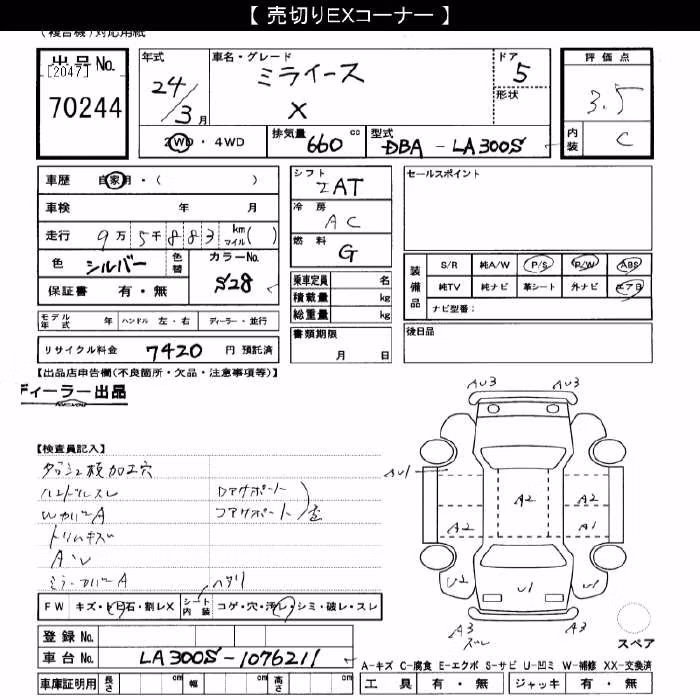 【 売切りEXコーナー 】
(複合機)対応用紙
出品No.
[2047]
70244
年式
24/3月
車名・グレード
ミライース
X
ドア
5
形状
評価点
3.5
内装
C
2WD・4WD
排気量
660 cc
型式
DBA - LA300S
車歴 自家用・( )
車検 年 月
走行 9万5千883 km マイル( )
色 シルバー
色替
カラーNo.
S28
保証書 有・無
モデル年式 年 ハンドル 左・右 ディーラー・並行
リサイクル料金 7420 円 預託済
シフト
IAT
冷房
AC
燃料
G
乗車定員 名
積載量 kg
総重量 kg
書類期限
月 日
セールスポイント
装備品
S/R 純A/W P/S P/W ABS
純TV 純ナビ 革シート 外ナビ エアB
ナビ型番:
後日品
【出品店申告欄(不良箇所・欠品・注意事項等)】
ディーラー出品
【検査員記入】
ダッシュ板加工穴
ハンドルスレ
Wカバー A
トリムキズ
ミラーカバーA
Dアサポート
コアサポート
FW キズ・トビ石・割レX
シート内装
コゲ・穴・汚レ・シミ・破レ・スレ
登録No.
車台No. LA300S-1076211
車庫証明用 長さ cm 幅 cm 高さ cm
AU3 AU3
AU1
A2 A2 A2 A1
U2 U1 U1
A3 A3
スレ
スペア
A-キズ C-腐食 E-エクボ S-サビ U-凹ミ W-補修 XX-交換済
工具 有・無 ジャッキ 有・無